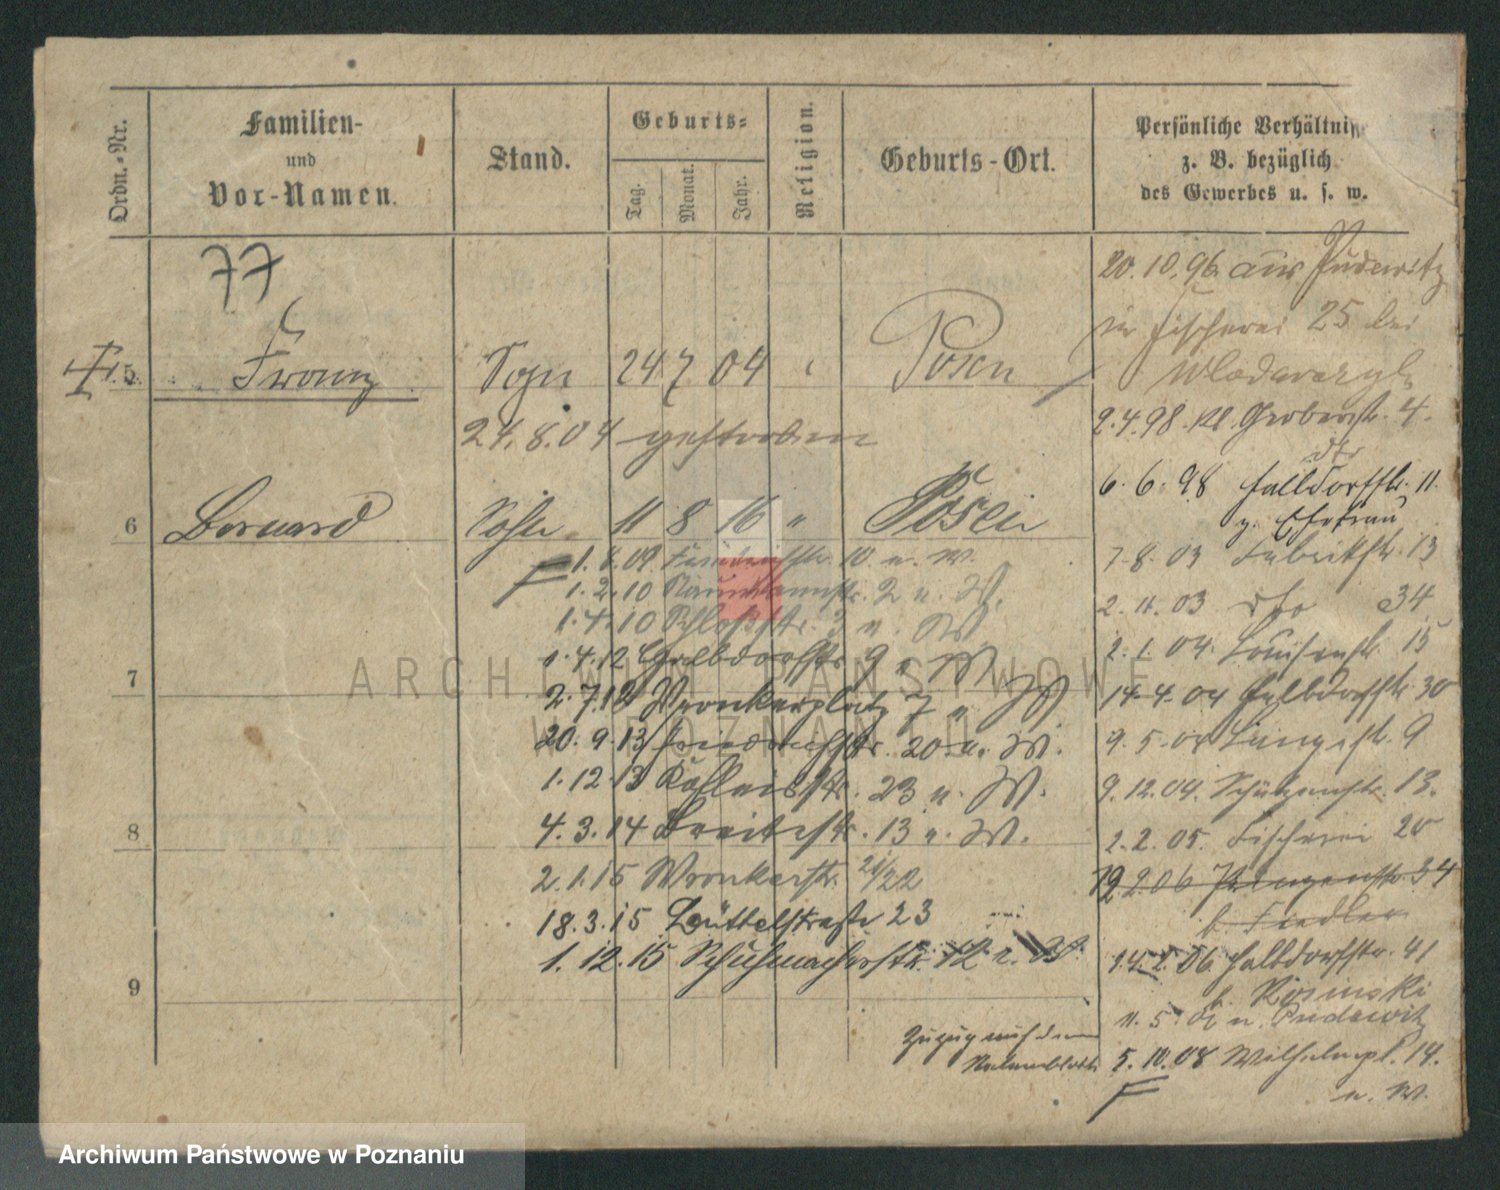 Ordn.-Nr.
Familien-
und
Vor-Namen.
Stand.
Geburts-
Tag.
Monat.
Jahr.
Religion.
Geburts-Ort.
Persönliche Verhältnisse
z. B. bezüglich
des Gewerbes u. s. w.
77
5 Franz Sohn 24 7 04 Posen
24.8.04 gestorben
6 Bernard Sohn 11 8 16 " Posen
1.8.09 Friedrichstr. 10 u. W.
1.2.10 Naumannstr. 2 u. W.
1.4.10 Schloßstr. 3 u. W.
1.4.12 Halbdorfstr. 9 u. W.
7
2.7.12 Wronkerplatz 7 u. W
20.9.13 Friedrichstr. 20 u. W.
1.12.13 23 u. W.
8
4.3.14 Breitestr. 13 u. W.
2.1.15 Wronkerstr. 21/22
18.3.15 Büttelstraße 23
1.12.15 Schuhmacherstr. 12 u. W.
9
Zuzug auf dem
20.10.96 aus Pudewitz
in Fischerei 25 bei
2.4.98 Kl. Gerberstr. 4.
6.6.98 Halbdorfstr. 11.
z. Ehefrau
7.8.03 Fabrikstr. 13
2.11.03 dto 34
2.1.04 Louisenstr. 15
14.4.04 Halbdorfstr. 30
9.5.04 Langestr. 9
9.12.04. Schützenstr. 13.
2.2.05. Fischerei 20
34
b. Fiedler
Halbdorfstr. 41
b. Rosinski
n. Pudewitz
5.10.08 Wilhelmpl. 14.
u. W.
ARCHIWUM PAŃSTWOWE
W POZNANIU
Archiwum Państwowe w Poznaniu